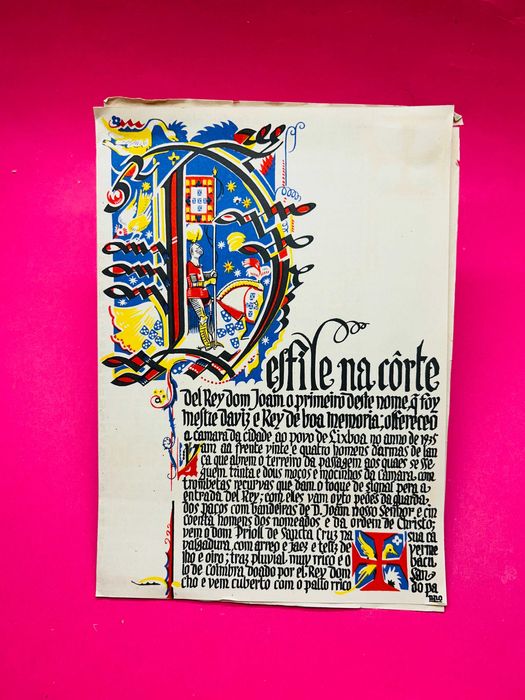 Desfile na côrte
del Rey dom Joam o primeiro deste nome, q̃ foy
mestre daviz e Rey de boa memoria; offereceo
a camara da cidade ao povo de Lixboa no anno de 1935
Vam aa frente vinte e quatro homens darmas de lan
ça que abrem o terreiro da passagem aos quaes se sse
guem trinta e dous moços e mocinhos da camara, com
trombetas recurvas que dam o toque de signal pera a
entrada del Rey; com elles vam oyto peões da guarda
dos paços com bandeiras de D. Joam nosso Senhor e cin
coenta homens dos nomeados e da ordem de Christo;
vem o dom Prioll de Sancta Cruz na sua ca
valgadura, com arreo e jaez e telis de verme
lho e oiro; traz pluvial muy rrico e o bacu
lo de Coimbra, doado por el Rey dom San
cho e vem cuberto com o pallio rrico do pa